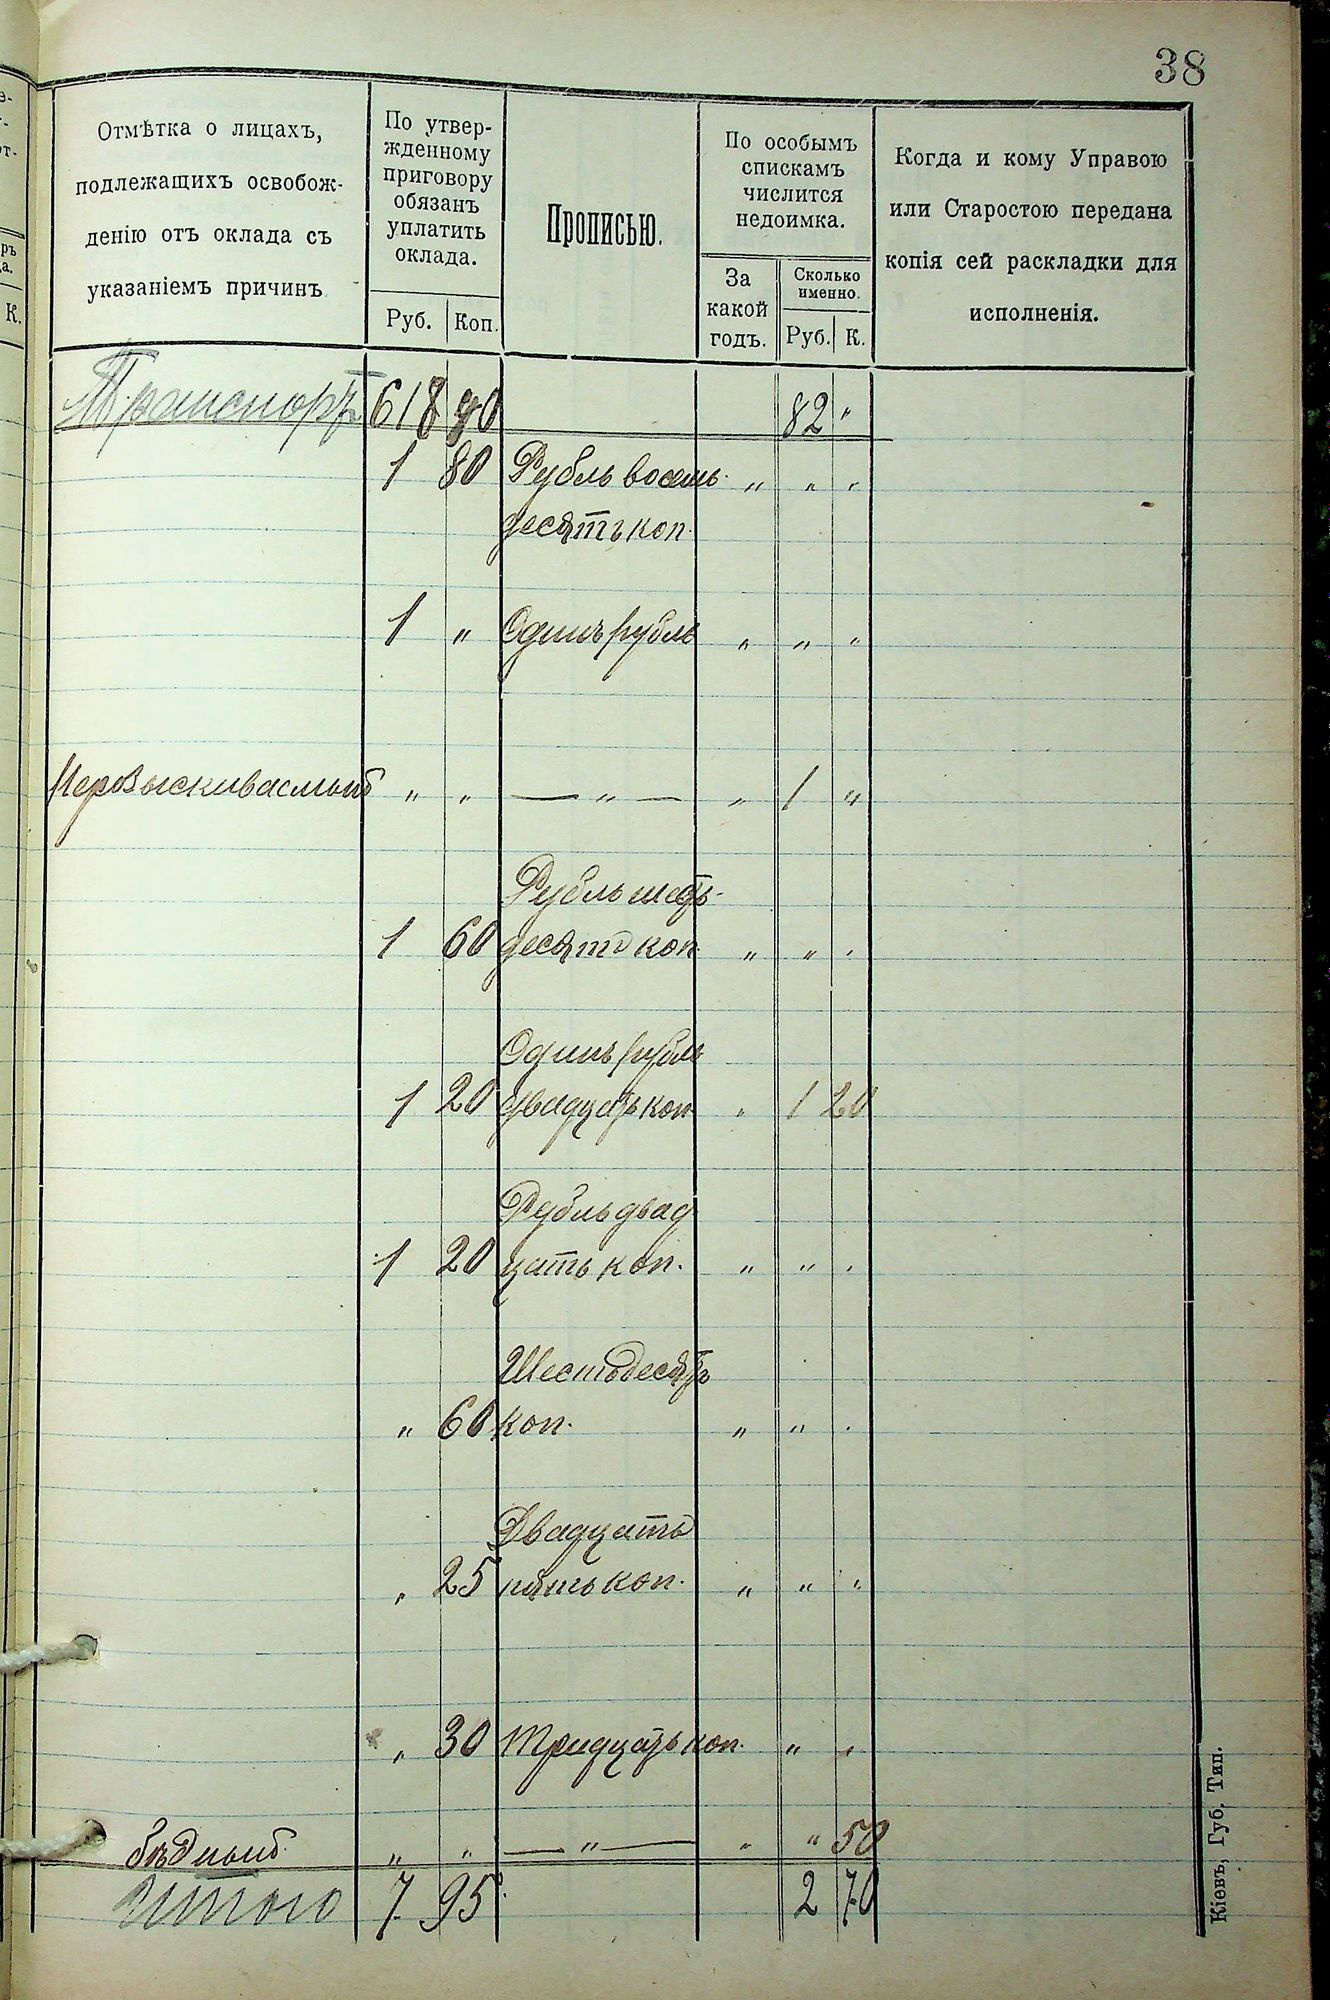 38
Отмѣтка о лицахъ,
подлежащихъ освобож-
денію отъ оклада съ
указаніемъ причинъ
По утвер-
жденному
приговору
обязанъ
уплатить
оклада.
Руб. Коп.
Прописью.
По особымъ
спискамъ
числится
недоимка.
За
какой
годъ.
Сколько
именно.
Руб. К.
Когда и кому Управою
или Старостою передана
копія сей раскладки для
исполненія.
Транспортъ 618 82 "
1 80 Рубль восемь- " " "
десятъ коп.
1 " Одинъ рубль " " "
" " — " — " 1 "
Рубль шесть-
1 60 десятъ коп. " " "
Одинъ рубль
1 20 двадцать коп " 1 20
Рубль двад
1 20 цать коп. " " "
Шестьдесятъ
" 60 коп. " " "
Двадцать
" 25 пять коп. " " "
" 30 Тридцать коп. " "
бѣдный " " — " — " " 50
Итого 7 95 2 70
Кіевъ, Губ. Тип.